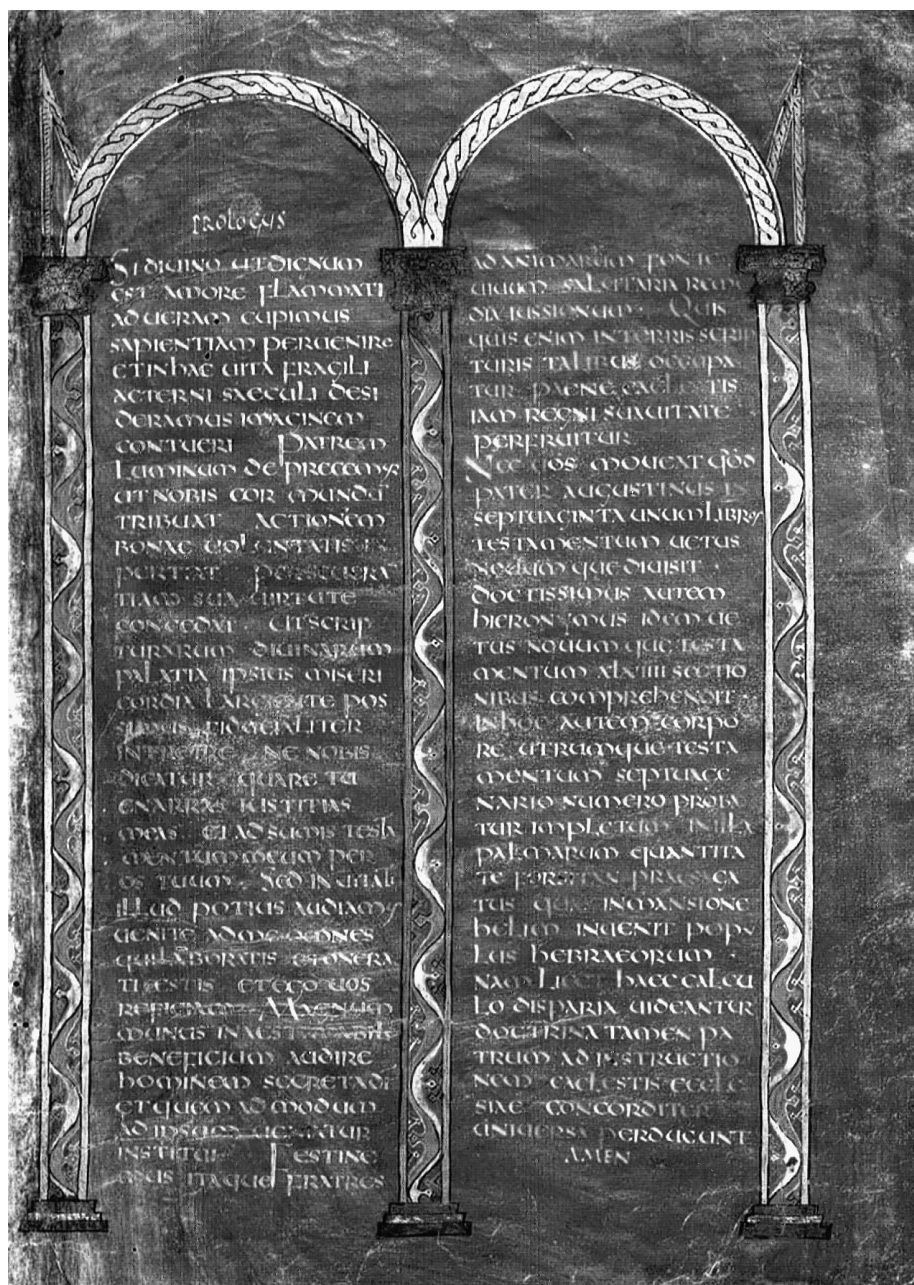 PROLOGUS
SI DIUINO UT DIGNUM
EST AMORE FLAMMATI
AD UERAM CUPIMUS
SAPIENTIAM PERUENIRE
ET IN HAC UITA FRAGILI
AETERNI SAECULI DESI
DERAMUS IMAGINEM
CONTUERI PATREM
LUMINUM DEPRECEMUR
UT NOBIS COR MUNDŪ
TRIBUAT ACTIONEM
BONAE UOLUNTATIS IN
PERTIAT PERSEUERA
TIAM SUA UIRTUTE
CONCEDAT UT SCRIP
TURARUM DIUINARUM
PALATIA IPSIUS MISERI
CORDIA LARGIENTE POS
SIMUS FIDUCIALITER
INTROIRE NE NOBIS
DICATUR QUARE TU
ENARRAS IUSTITIAS
MEAS ET ADSUMIS TESTA
MENTUM MEUM PER
OS TUUM SED INUITATI
ILLUD POTIUS AUDIAMUS
UENITE AD ME OMNES
QUI LABORATIS ET ONERA
TI ESTIS ET EGO UOS
REFICIAM MAGNUM
MUNUS INAESTIMABILE
BENEFICIUM AUDIRE
HOMINEM SECRETA DĪ
ET QUEM AD MODUM
AD IPSUM UENIATUR
INSTITUI FESTINE
MUS ITAQUE FRATRES
AD ANIMARUM FONTĒ
UIUUM SALUTARIA REME
DIA IUSSIONUM QUIS
QUIS ENIM IN TERRIS SCRIP
TURIS TALIBUS OCCUPA
TUR PAENE CAELESTIS
IAM REGNI SUAUITATE
PERFRUITUR
NEC UOS MOUEAT QUOD
PATER AUGUSTINUS IN
SEPTUAGINTA UNUM LIBROS
TESTAMENTUM UETUS
NOUUMQUE DIUISIT
DOCTISSIMUS AUTEM
HIERONYMUS IDEM UE
TUS NOUUMQUE TESTA
MENTUM XLVIIII SECTIO
NIBUS COMPREHENDIT
IN HOC AUTEM CORPO
RE UTRUMQUE TESTA
MENTUM SEPTUAGE
NARIO NUMERO PROBA
TUR IMPLETUM IN ILLA
PALMARUM QUANTITA
TE FORSITAN PRAESAGA
TUS QUAS IN MANSIONE
HELIM INUENIT POPU
LUS HEBRAEORUM
NAM LICET HAEC CALCU
LO DISPARIA UIDEANTUR
DOCTRINA TAMEN PA
TRUM AD INSTRUCTIO
NEM CAELESTIS ECCLE
SIAE CONCORDITER
UNIUERSA PERDUCUNT
AMEN